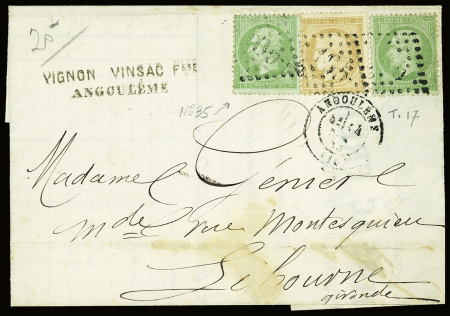 20
VIGNON VINSAC
ANGOULÊME
N°35
ANGOULEME
T.17
Madame
mde rue Montesquieu
Libourne
gironde